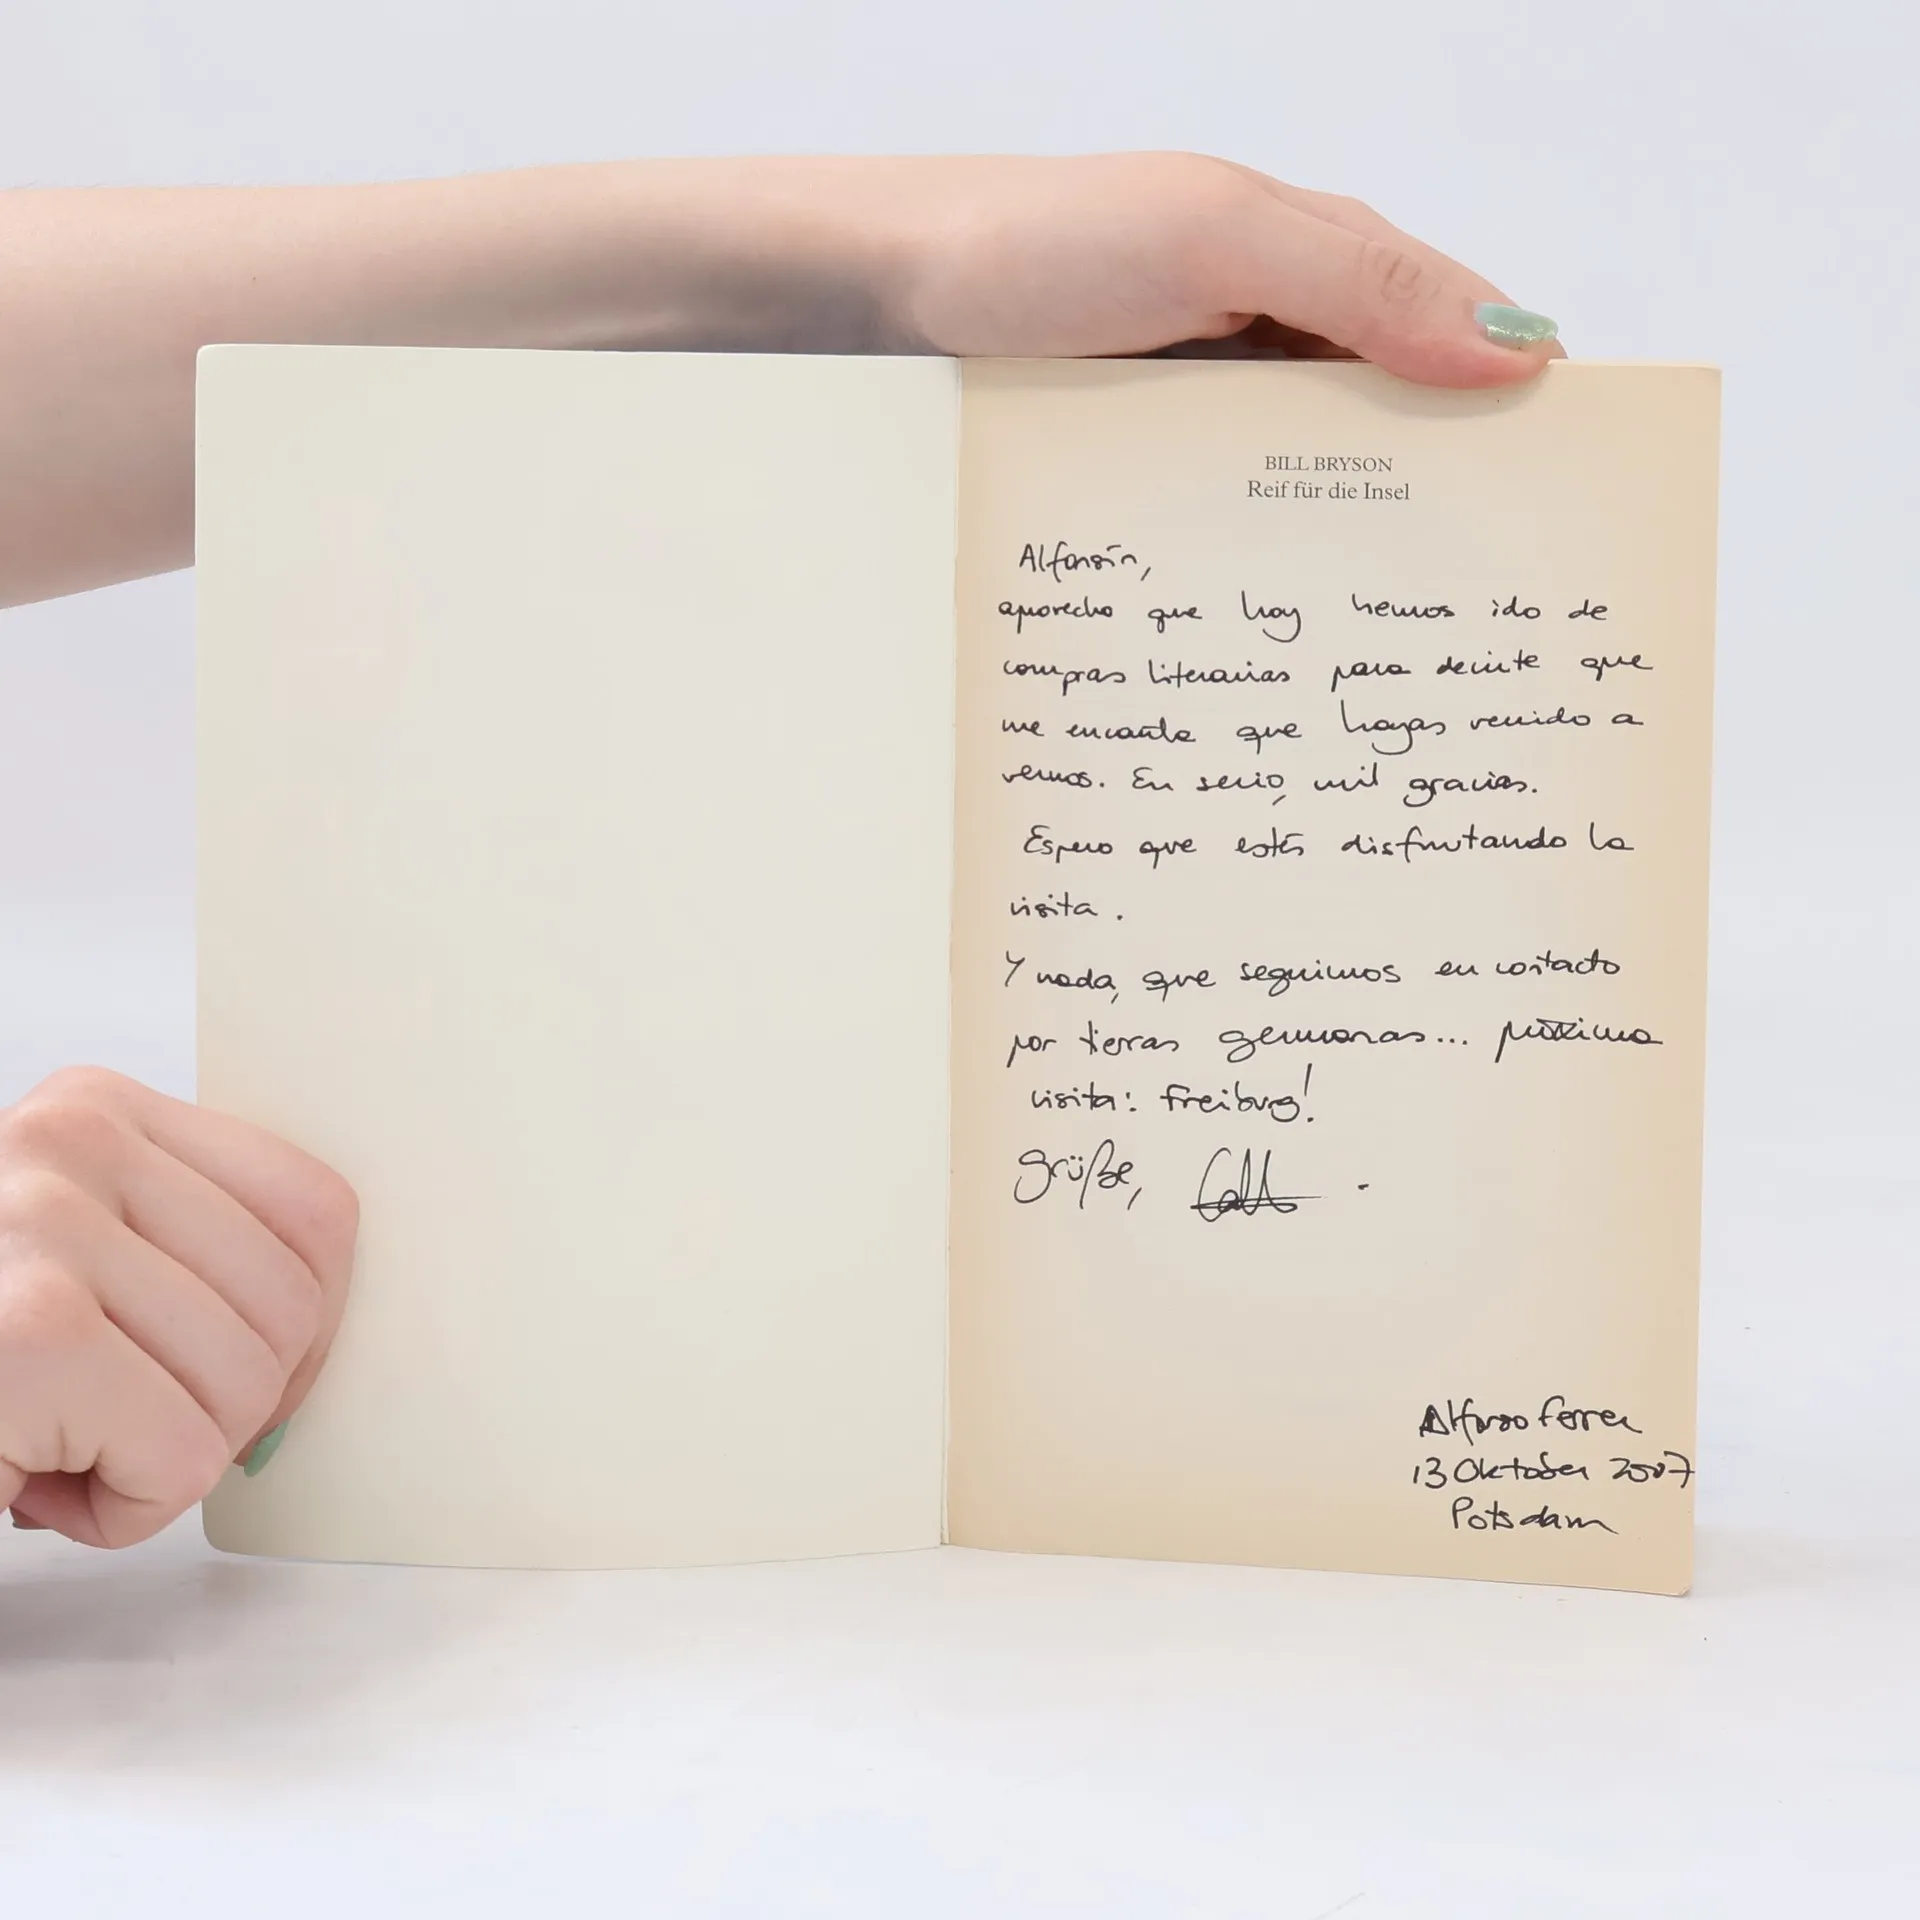 BILL BRYSON
Reif für die Insel
Alfonsín,
aprovecho que hoy hemos ido de
compras literarias para decirte que
me encanta que hayas venido a
vernos. En serio, mil gracias.
Espero que estés disfrutando la
visita.
Y nada, que seguimos en contacto
por tierras germanas... próxima
visita: Freiburg!
Grüße,
Alfonso Ferrer
13 Oktober 2007
Potsdam